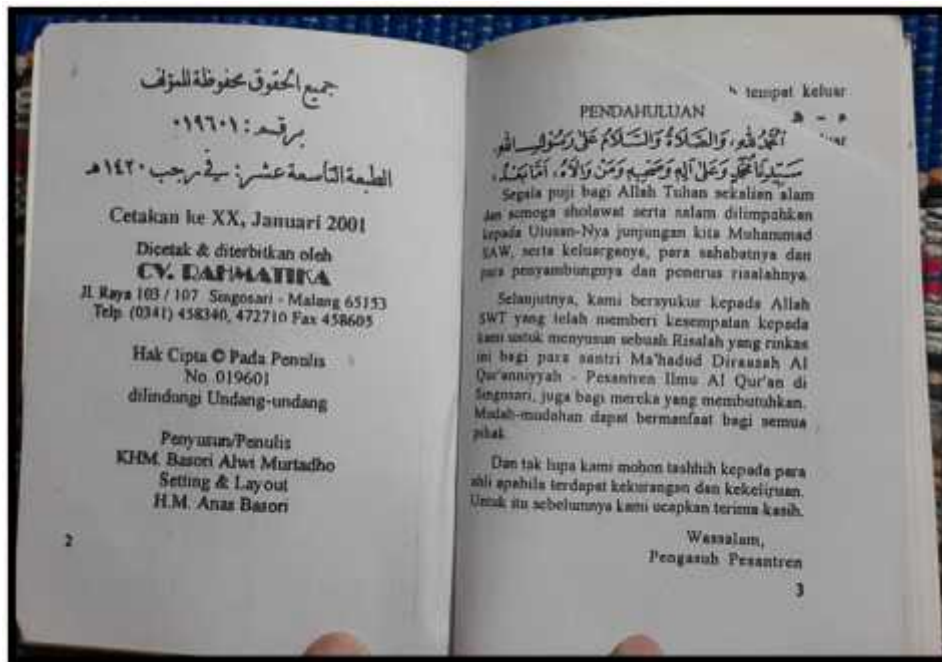 جميع الحقوق محفوظة للمؤلف
برقم: ٠١٩٦٠١
الطبعة التاسعة عشر: في رجب ١٤٢٠ هـ
Cetakan ke XX, Januari 2001
Dicetak & diterbitkan oleh
CV. RAHMATIKA
Jl. Raya 103 / 107 Singosari - Malang 65153
Telp. (0341) 458340, 472710 Fax 458605
Hak Cipta © Pada Penulis
No. 019601
dilindungi Undang-undang
Penyusun/Penulis
KHM. Basori Alwi Murtadho
Setting & Layout
H.M. Anas Basori
2
tempat keluar
م - ه
PENDAHULUAN
الحمد لله، والصلاة والسلام على رسول الله
سيدنا محمد وعلى آله وصحبه ومن والاه، أما بعد،
Segala puji bagi Allah Tuhan sekalian alam
dan semoga sholawat serta salam dilimpahkan
kepada Utusan-Nya junjungan kita Muhammad
SAW, serta keluarganya, para sahabatnya dan
para penyambungnya dan penerus risalahnya.
Selanjutnya, kami bersyukur kepada Allah
SWT yang telah memberi kesempatan kepada
kami untuk menyusun sebuah Risalah yang ringkas
ini bagi para santri Ma'hadud Dirausah Al
Qur'anniyyah - Pesantren Ilmu Al Qur'an di
Singosari, juga bagi mereka yang membutuhkan.
Mudah-mudahan dapat bermanfaat bagi semua
pihak.
Dan tak lupa kami mohon tashhih kepada para
ahli apabila terdapat kekurangan dan kekeliruan.
Untuk itu sebelumnya kami ucapkan terima kasih.
Wassalam,
Pengasuh Pesantren
3